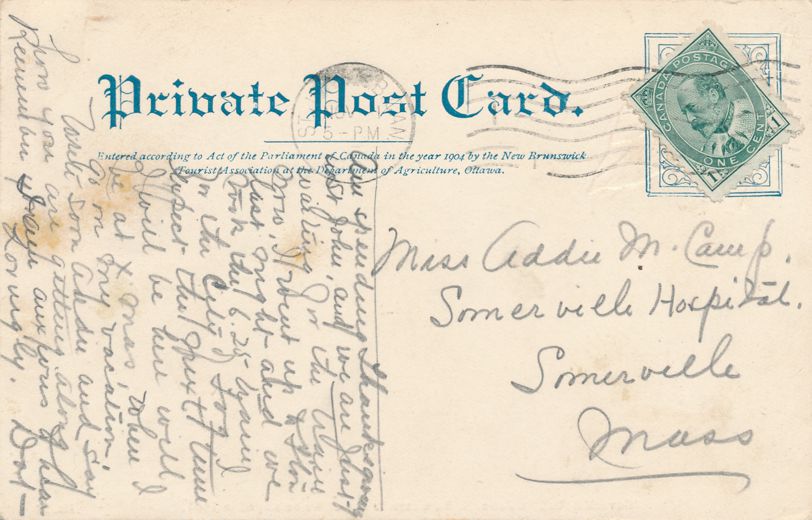 Private Post Card.
Entered according to Act of the Parliament of Canada in the year 1904 by the New Brunswick
Tourist Association at the Department of Agriculture, Ottawa.
CANADA POSTAGE
ONE CENT
1 1
5-PM
Miss Addie M. Camp.
Somerville Hospital.
Somerville
Mass
Am spending Thanksgiving
St John, and we are just
waiting for the train
now, went up to
last night and we
took the 6.25 train
for the City of Fog. I
expect the next time
I will be here will
be at Xmas, when I
go on my vacation
Write soon Addie and say
how you are getting along
Remember I am anxious to hear
Lovingly. Dot—